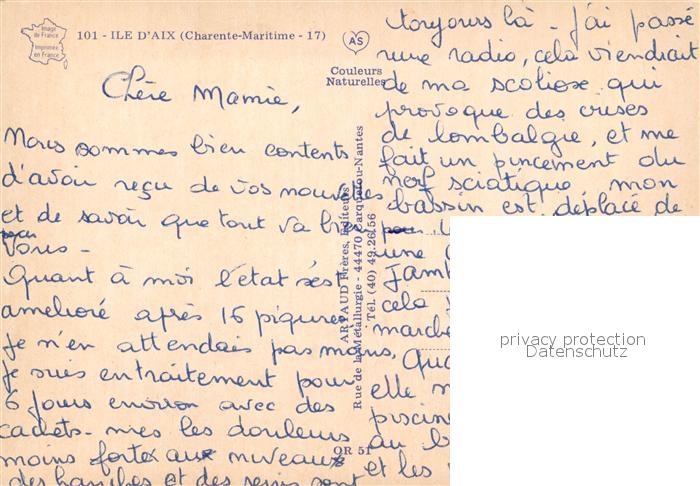 Image
de France
Imprimée
en France
101 - ILE D'AIX (Charente-Maritime - 17)
AS
Couleurs
Naturelles
Chère Mamie,
Nous sommes bien contents
d'avoir reçu de vos nouvelles
et de savoir que tout va bien
pour
vous -
Quant à moi l'état s'est
amelioré après 16 piqures
je n'en attendais pas moins,
je suis en traitement pour
6 jours environ avec des
cachets - mes les douleurs
moins fortes aux niveaux
des hanches et des reins sont
ARTAUD Frères, Editeurs
Rue de la Métallurgie - 44470 Carquefou-Nantes
Tél. (40) 49.26.56
OR 51
toujours là - j'ai passé
une radio, cela viendrait
de ma scoliose qui
provoque des crises
de lombalgie, et me
fait un pincement du
nerf sciatique, mon
bassin est déplacé de
une
jamb
cela
marche
Qua
elle m
piscine
au b
et les
privacy protection
Datenschutz